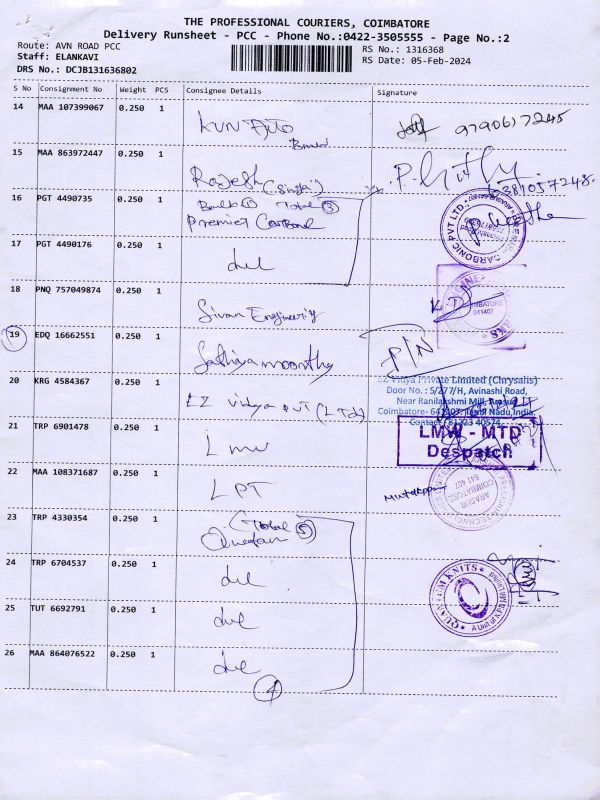 THE PROFESSIONAL COURIERS, COIMBATORE
Delivery Runsheet - PCC - Phone No.:0422-3505555 - Page No.:2
Route: AVN ROAD PCC
RS No.: 1316368
Staff: ELANKAVI
RS Date: 05-Feb-2024
DRS No.: DCJB131636802
S No Consignment No Weight PCS Consignee Details Signature
14 MAA 107399067 0.250 1
9790617245
15 MAA 863972447 0.250 1
Rajesh
16 PGT 4490735 0.250 1
Total 3
Premier Carbond
CARBONIC PVT LTD.
17 PGT 4490176 0.250 1
18 PNQ 757049874 0.250 1
Sivan Engineering
641407
19 EDQ 16662551 0.250 1
Sathiyamoorthy
P/N
20 KRG 4584367 0.250 1
LZ Vidya pvt (Ltd)
LZ Vidya Private Limited (Chrysalis)
Door No. : 5/277/H, Avinashi Road,
Near Ranilakshmi Mill, Arasur,
Coimbatore- 641407, Tamil Nadu, India.
Contact: 81223 40574
21 TRP 6901478 0.250 1
Lmw
LMW - MTD
Despatch
22 MAA 108371687 0.250 1
LPT
ARASUR
COIMBATORE
641 407
23 TRP 4330354 0.250 1
(Total 5)
24 TRP 6704537 0.250 1
25 TUT 6692791 0.250 1
QUANTUM KNITS
26 MAA 864076522 0.250 1
4